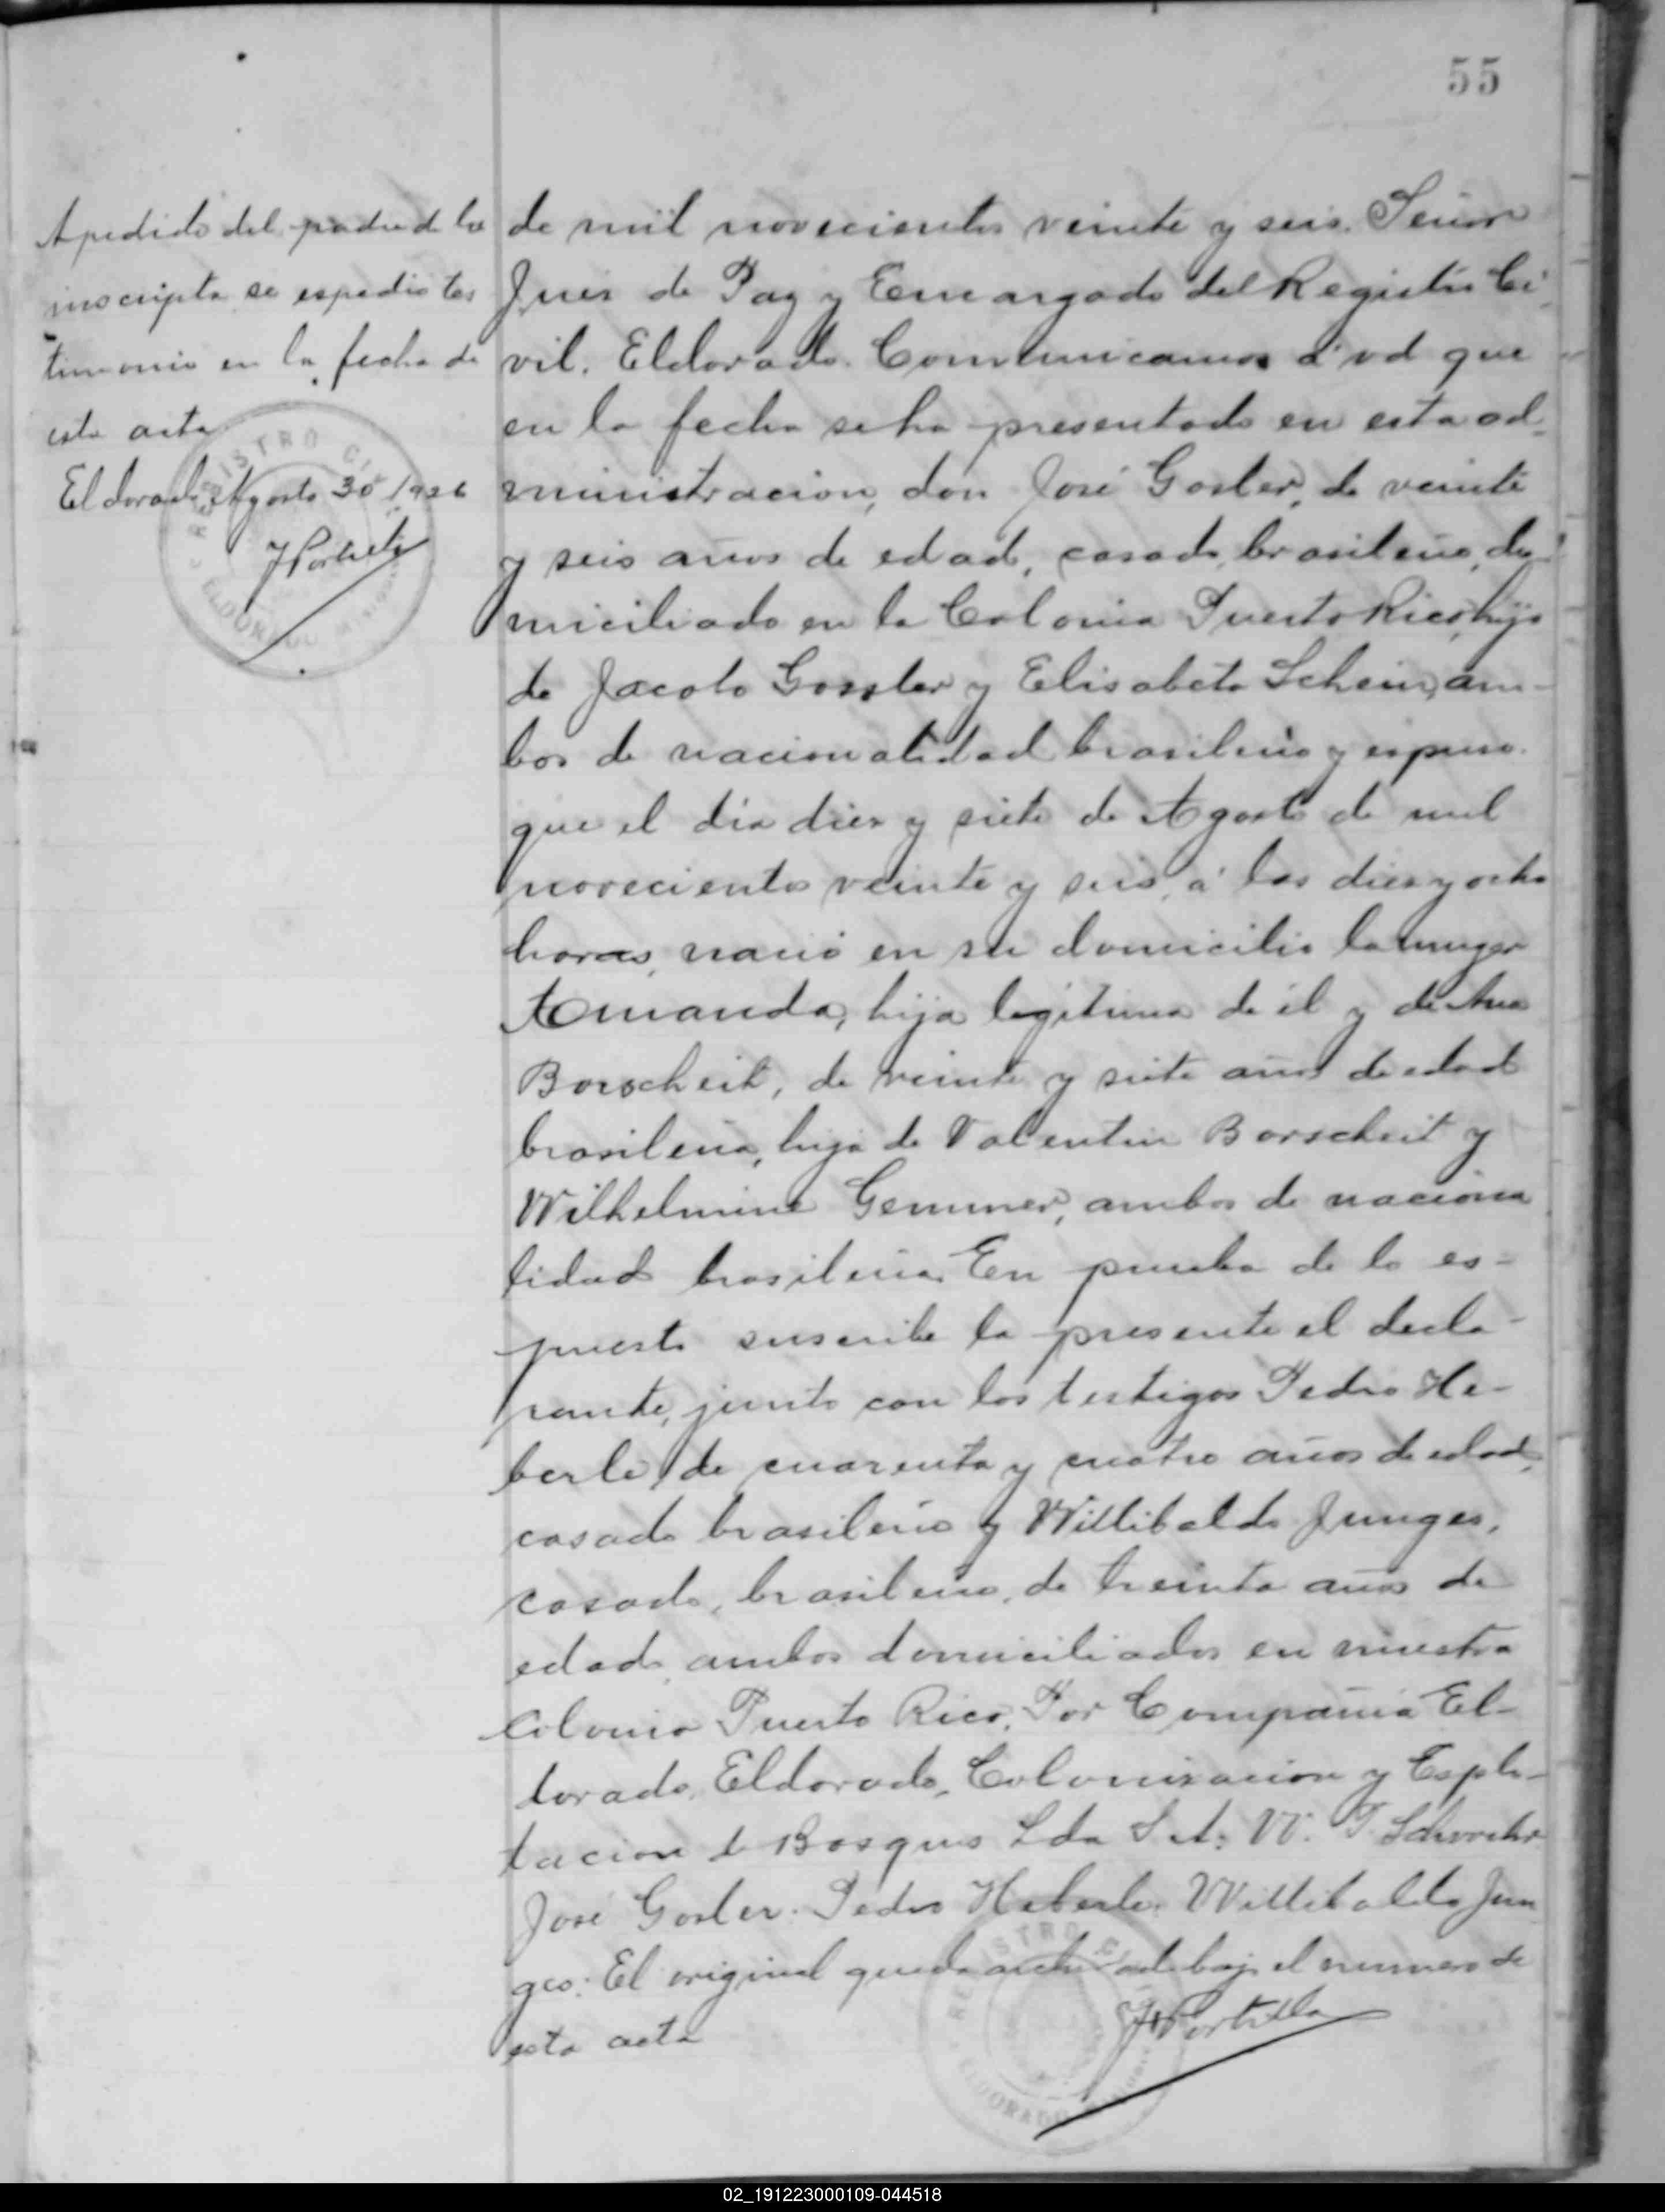 55
Apedido del padre de la
inscripta se espedio tes
timonio en la fecha de
esta acta
Eldorado, Agosto 30/926
JPortillo
REGISTRO CIVIL
ELDORADO
de mil novecientos veinte y seis. Señor
Juez de Paz y Encargado del Registro Ci-
vil. Eldorado. Comunicamos á vd que
en la fecha se ha presentado en esta ad-
ministracion, don José Gosler, de veinte
y seis años de edad, casado, brasileño, do-
miciliado en la Colonia Puerto Rico, hijo
de Jacobo Gossler y Elisabeta Schein, am-
bos de nacionalidad brasileña y espuso.
que el dia diez y siete de Agosto de mil
novecientos veinte y seis, á las diez y ocho
horas, nació en su domicilio la muger
Amanda, hija legitima de él y de Ana
Borscheit, de veinte y siete años de edad
brasileña, hija de Valentin Borscheit y
Wilhelmine Gemmer, ambos de naciona
lidad brasileña. En prueba de lo es-
puesto suscribe la presente el decla-
rante, junto con los testigos Pedro He-
berle, de cuarenta y cuatro años de edad,
casado brasileño y Willibaldo Junges,
casado, brasileño, de treinta años de
edad, ambos domiciliados en nuestra
Colonia Puerto Rico. Por Compañia El-
dorado, Eldorado, Colonizacion y Esplo-
tacion de Bosques Lda S. A: W. P.
José Gosler. Pedro Heberle. Willibaldo Jun
ges. El original queda archivado bajo el numero de
esta acta
JPortillo
REGISTRO CIVIL
ELDORADO
02_191223000109-044518